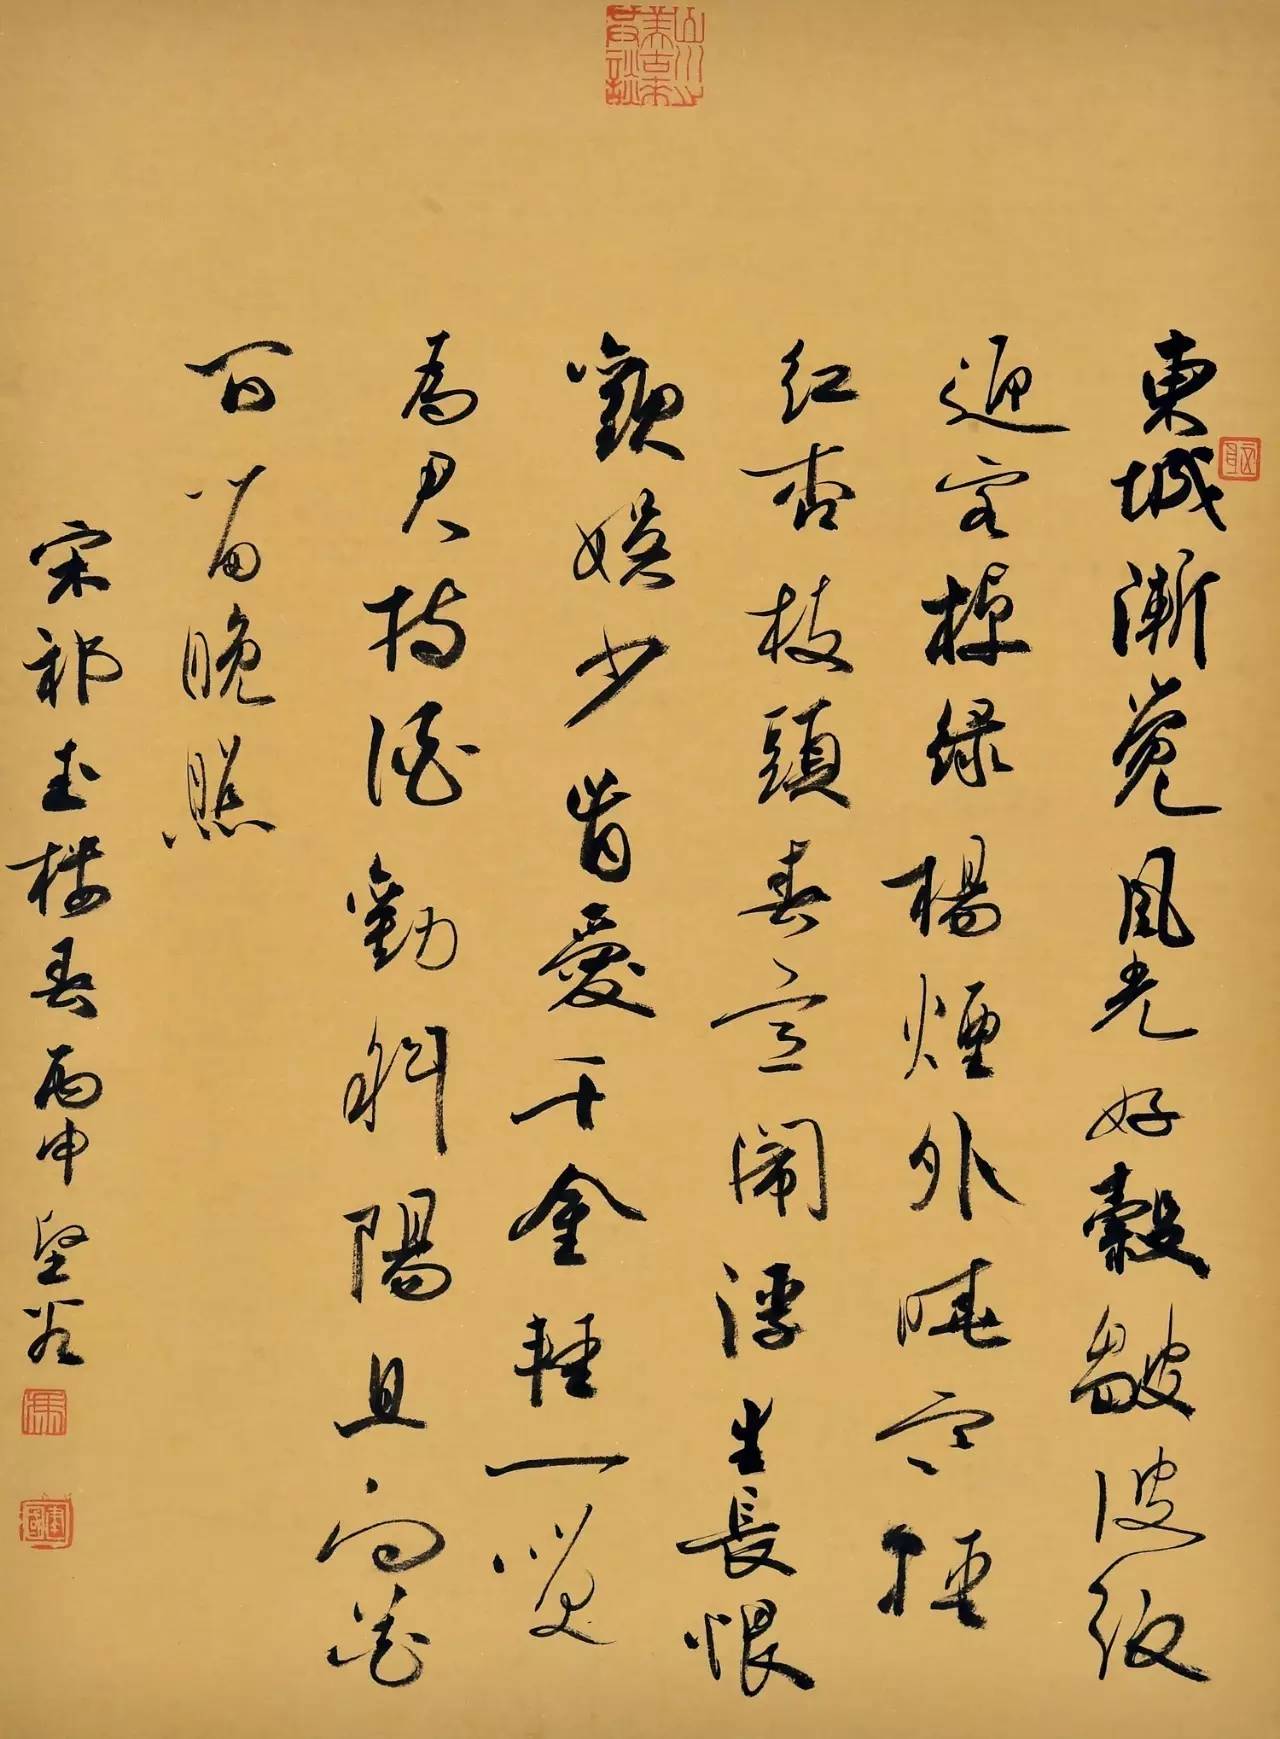 山川之美古來共談
東城漸覺風光好縠皺波紋
迎客棹綠楊煙外曉寒輕
紅杏枝頭春意鬧浮生長恨
歡娛少肯愛千金輕一笑
為君持酒勸斜陽且向花
間留晚照
宋祁玉樓春丙申堅